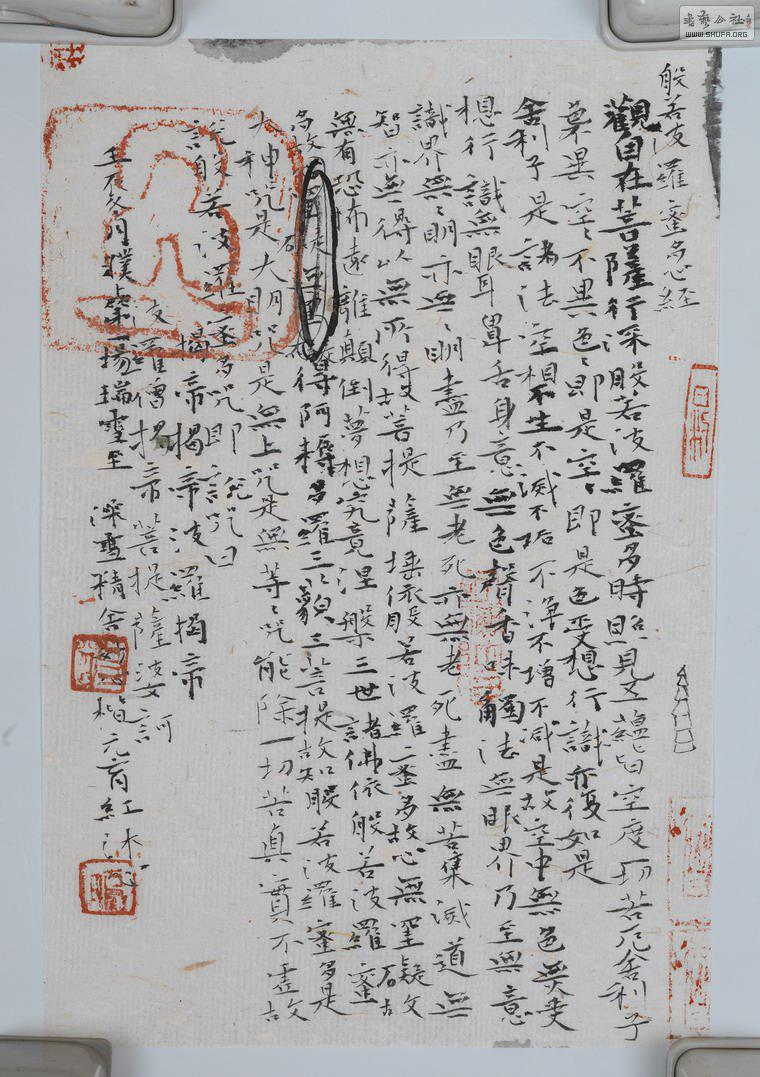 般若波羅蜜多心經
觀自在菩薩行深般若波羅蜜多時照見五蘊皆空度一切苦厄舍利子
色異空空不異色色即是空空即是色受想行識亦復如是
舍利子是諸法空相不生不滅不垢不淨不增不減是故空中無色無受
想行識無眼耳鼻舌身意無色聲香味觸法無眼界乃至無意
識界無無明亦無無明盡乃至無老死亦無老死盡無苦集滅道無
智亦無得以無所得故菩提薩埵依般若波羅蜜多故心無罣礙故
無有恐怖遠離顛倒夢想究竟涅槃三世諸佛依般若波羅蜜
多故得阿耨多羅三藐三菩提故知般若波羅蜜多是
大神咒是大明咒是無上咒是無等等咒能除一切苦真實不虛故
說般若波羅蜜多咒即說咒曰
揭帝揭帝波羅揭帝
波羅僧揭帝菩提薩婆訶
瑞雪至 深雪精舍
WWW.SHUFA.ORG